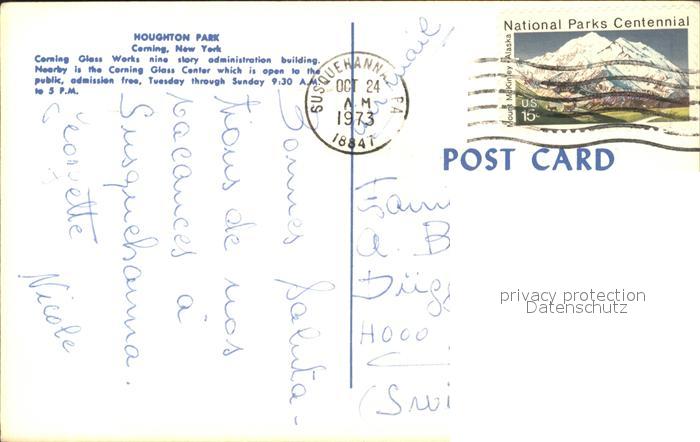 HOUGHTON PARK
Corning, New York
Corning Glass Works nine story administration building.
Nearby is the Corning Glass Center which is open to the
public, admission free, Tuesday through Sunday 9:30 A.M.
to 5 P.M.
Bonnes Saluta-
tions de nos
vacances à
Susquehanna.
Georgette
Nicole
SUSQUEHANNA, PA
OCT 24
A M
1973
18847
air mail
National Parks Centennial
Mount McKinley Alaska
U.S.
15c
POST CARD
Fami
A. B
Dügg
4000
(Swi
privacy protection
Datenschutz